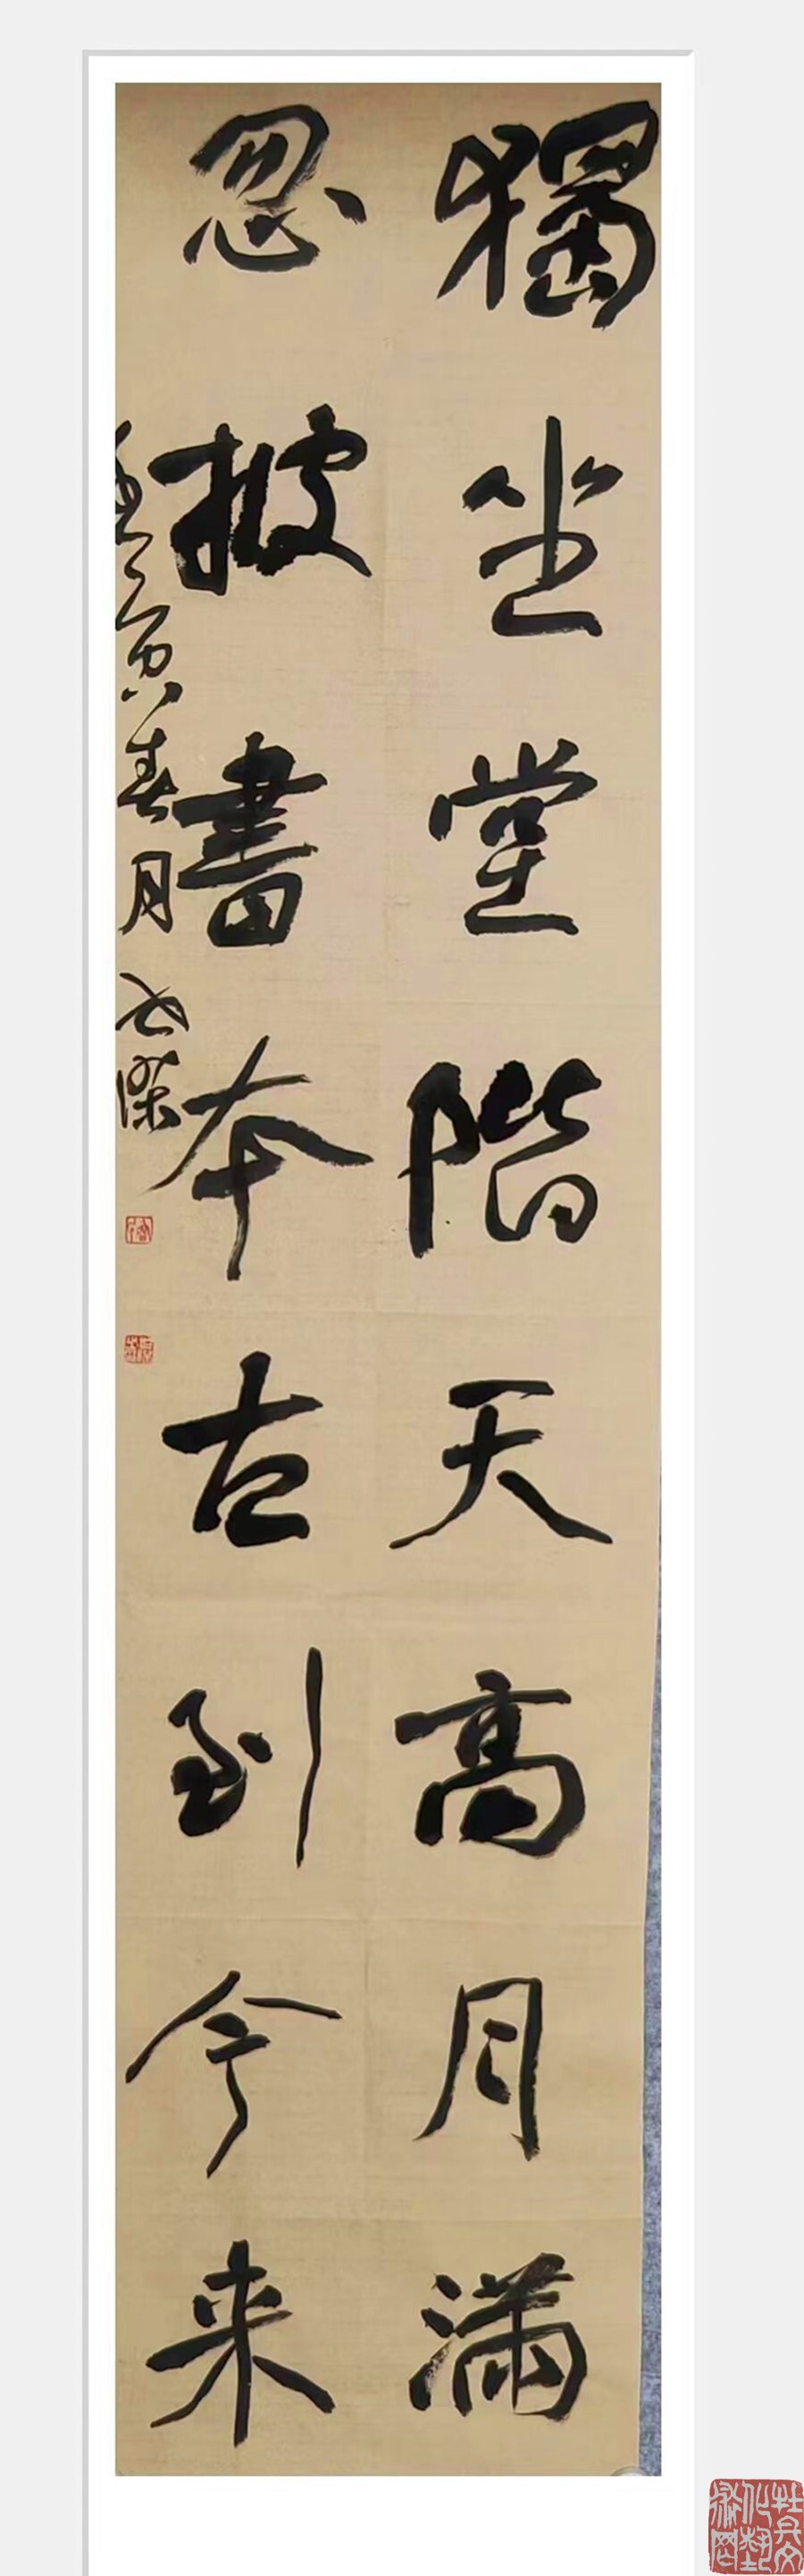 獨坐堂階天高月滿
忽披書本古到今来
春月